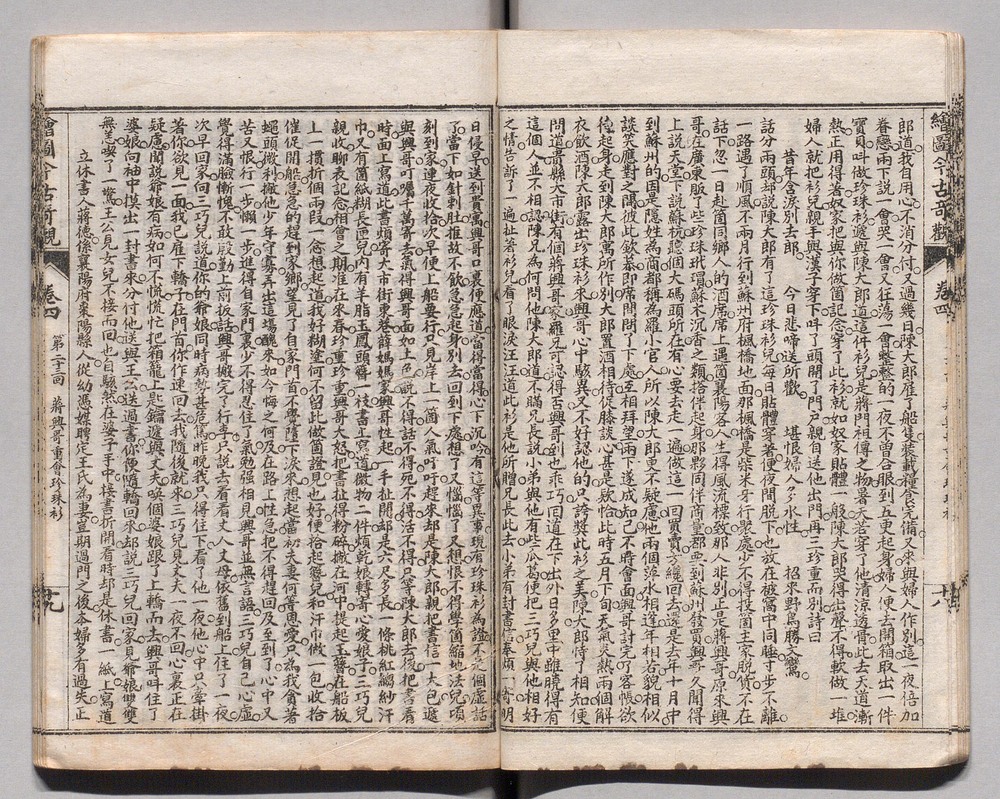 繪圖今古奇觀
卷四
十八
郎道我自用心不消分付又過幾日陳大郎雇下船隻裝載糧食完備又來與婦人作別這一夜倍加
眷戀兩下說一會哭一會又狂蕩一會整整的一夜不曾合眼到五更起身婦人便去開箱取出一件
寶貝叫做珍珠衫遞與陳大郎道這件衫兒是蔣門祖傳之物暑天若穿了他清涼透骨此去天道漸
熱正用得著奴家把與你做個記念穿了此衫就如奴家貼體一般陳大郎哭得出聲不得軟做一堆
婦人就把衫兒親手與漢子穿下叫丫頭開了門戶親自送他出門再三珍重而別詩曰
昔年含淚別夫郎　今日悲啼送所歡　堪恨婦人多水性　招來野鳥勝文鸞
話分兩頭却說陳大郎有了這珍珠衫兒每日貼體穿著便夜間脫下也放在被窩中同睡寸步不離
一路遇了順風不兩月行到蘇州府楓橋地面那楓橋是柴米牙行聚處少不得投箇主家脫貨不在
話下忽一日赴箇同鄉人的酒席席上遇箇襄陽客人生得風流標致那人非別正是蔣興哥原來興
哥在廣東販了些珍珠玳瑁蘇木沉香之類搭伴起身那夥同伴商量都要到蘇州發賣興哥久聞得
上說天堂下說蘇杭聽個大碼頭所在有心要去走一遍做這一回買賣方纔回去還是去年十月中
到蘇州的因是隱姓為商都稱為羅小官人所以陳大郎更不疑慮他兩個萍水相逢年相若貌相似
談笑應對之間彼此欽慕即席間問了下處互相拜望兩下遂成知己不時會面興哥討完了客賬欲
待起身走到陳大郎寓所作別大郎置酒相待促膝談心甚是款洽此時五月下旬天氣炎熱兩個解
衣飲酒陳大郎露出珍珠衫來興哥心中駭異又不好認他的只誇獎此衫之美陳大郎恃了相知便
問道貴縣大市街有個蔣興哥家羅兄可認得否興哥到也乖巧回道在下出外日多里中雖曉得有
這個人並不相認陳兄為何問他陳大郎道不瞞兄長說小弟與他有些瓜葛便把三巧兒與他相好
之情告訴了一遍扯著衫兒看了眼淚汪汪道此衫是他所贈兄長此去小弟有封書信奉煩一寄明
日侵早送到貴寓興哥口裏便應道當得當得心下沉吟有這等異事現有珍珠衫為證不是個虛話
了當下如針刺肚推故不飲急急起身別去回到下處想了又惱惱了又想恨不得學箇縮地法兒頃
刻到家連夜收拾次早便上船要行只見岸上一個人氣吁吁趕來却是陳大郎親把書信一大包遞
與興哥叮囑千萬寄去氣得興哥面如土色說不得話不得死不得活不得只等陳大郎去後把書看
時面上寫道此書煩寄大市街東巷薛媽媽家興哥性起一手扯開却是六尺多長一條桃紅縐紗汗
巾又有箇紙糊長匣兒內有羊脂玉鳳頭簪一枝書上寫道微物二件煩乾娘轉寄心愛娘子三巧兒
親收聊表記念相會之期准在來春珍重珍重興哥大怒把書扯得粉碎撇在河中提起玉簪在船板
上一摜折個兩段一念想起道我好糊塗何不留此做箇證見也好便拾起簪兒和汗巾做一包收拾
催促開船急急的趕到家鄉望見了自家門首不覺墮下淚來想起當初夫妻何等恩愛只為我貪著
蠅頭微利撇他少年守寡弄出這場醜來如今悔之何及在路上性急巴不得趕回及至到了心中又
苦又恨行一步懶一步進得自家門裏少不得忍住了氣勉強相見興哥並無言語三巧兒自己心虛
覺得滿臉慚愧不敢殷勤上前扳話興哥搬完了行李只說去看看丈人丈母依舊到船上住了一夜
次早回家向三巧兒說道你的爹娘同時病勢甚危篤昨晚我只得住下看了他一夜他心中只牽掛
著你欲見一面我已雇下轎子在門首你作速回去我隨後就來三巧兒見丈夫一夜不回心裏正在
疑慮聞說爹娘有病如何不慌慌忙把箱籠上匙鑰遞與丈夫喚個婆娘跟了上轎而去興哥叫住了
婆娘向袖中摸出一封書來分付他送與王公送過書你便隨轎回來却說三巧兒回家見爹娘雙雙
無恙吃了一驚王公見女兒不接而回也自駭然在婆子手中接書拆開看時却是休書一紙上寫道
立休書人蔣德係襄陽府棗陽縣人從幼憑媒聘定王氏為妻豈期過門之後本婦多有過失正
繪圖今古奇觀
卷四
第二十三回　蔣興哥重會珍珠衫
十九